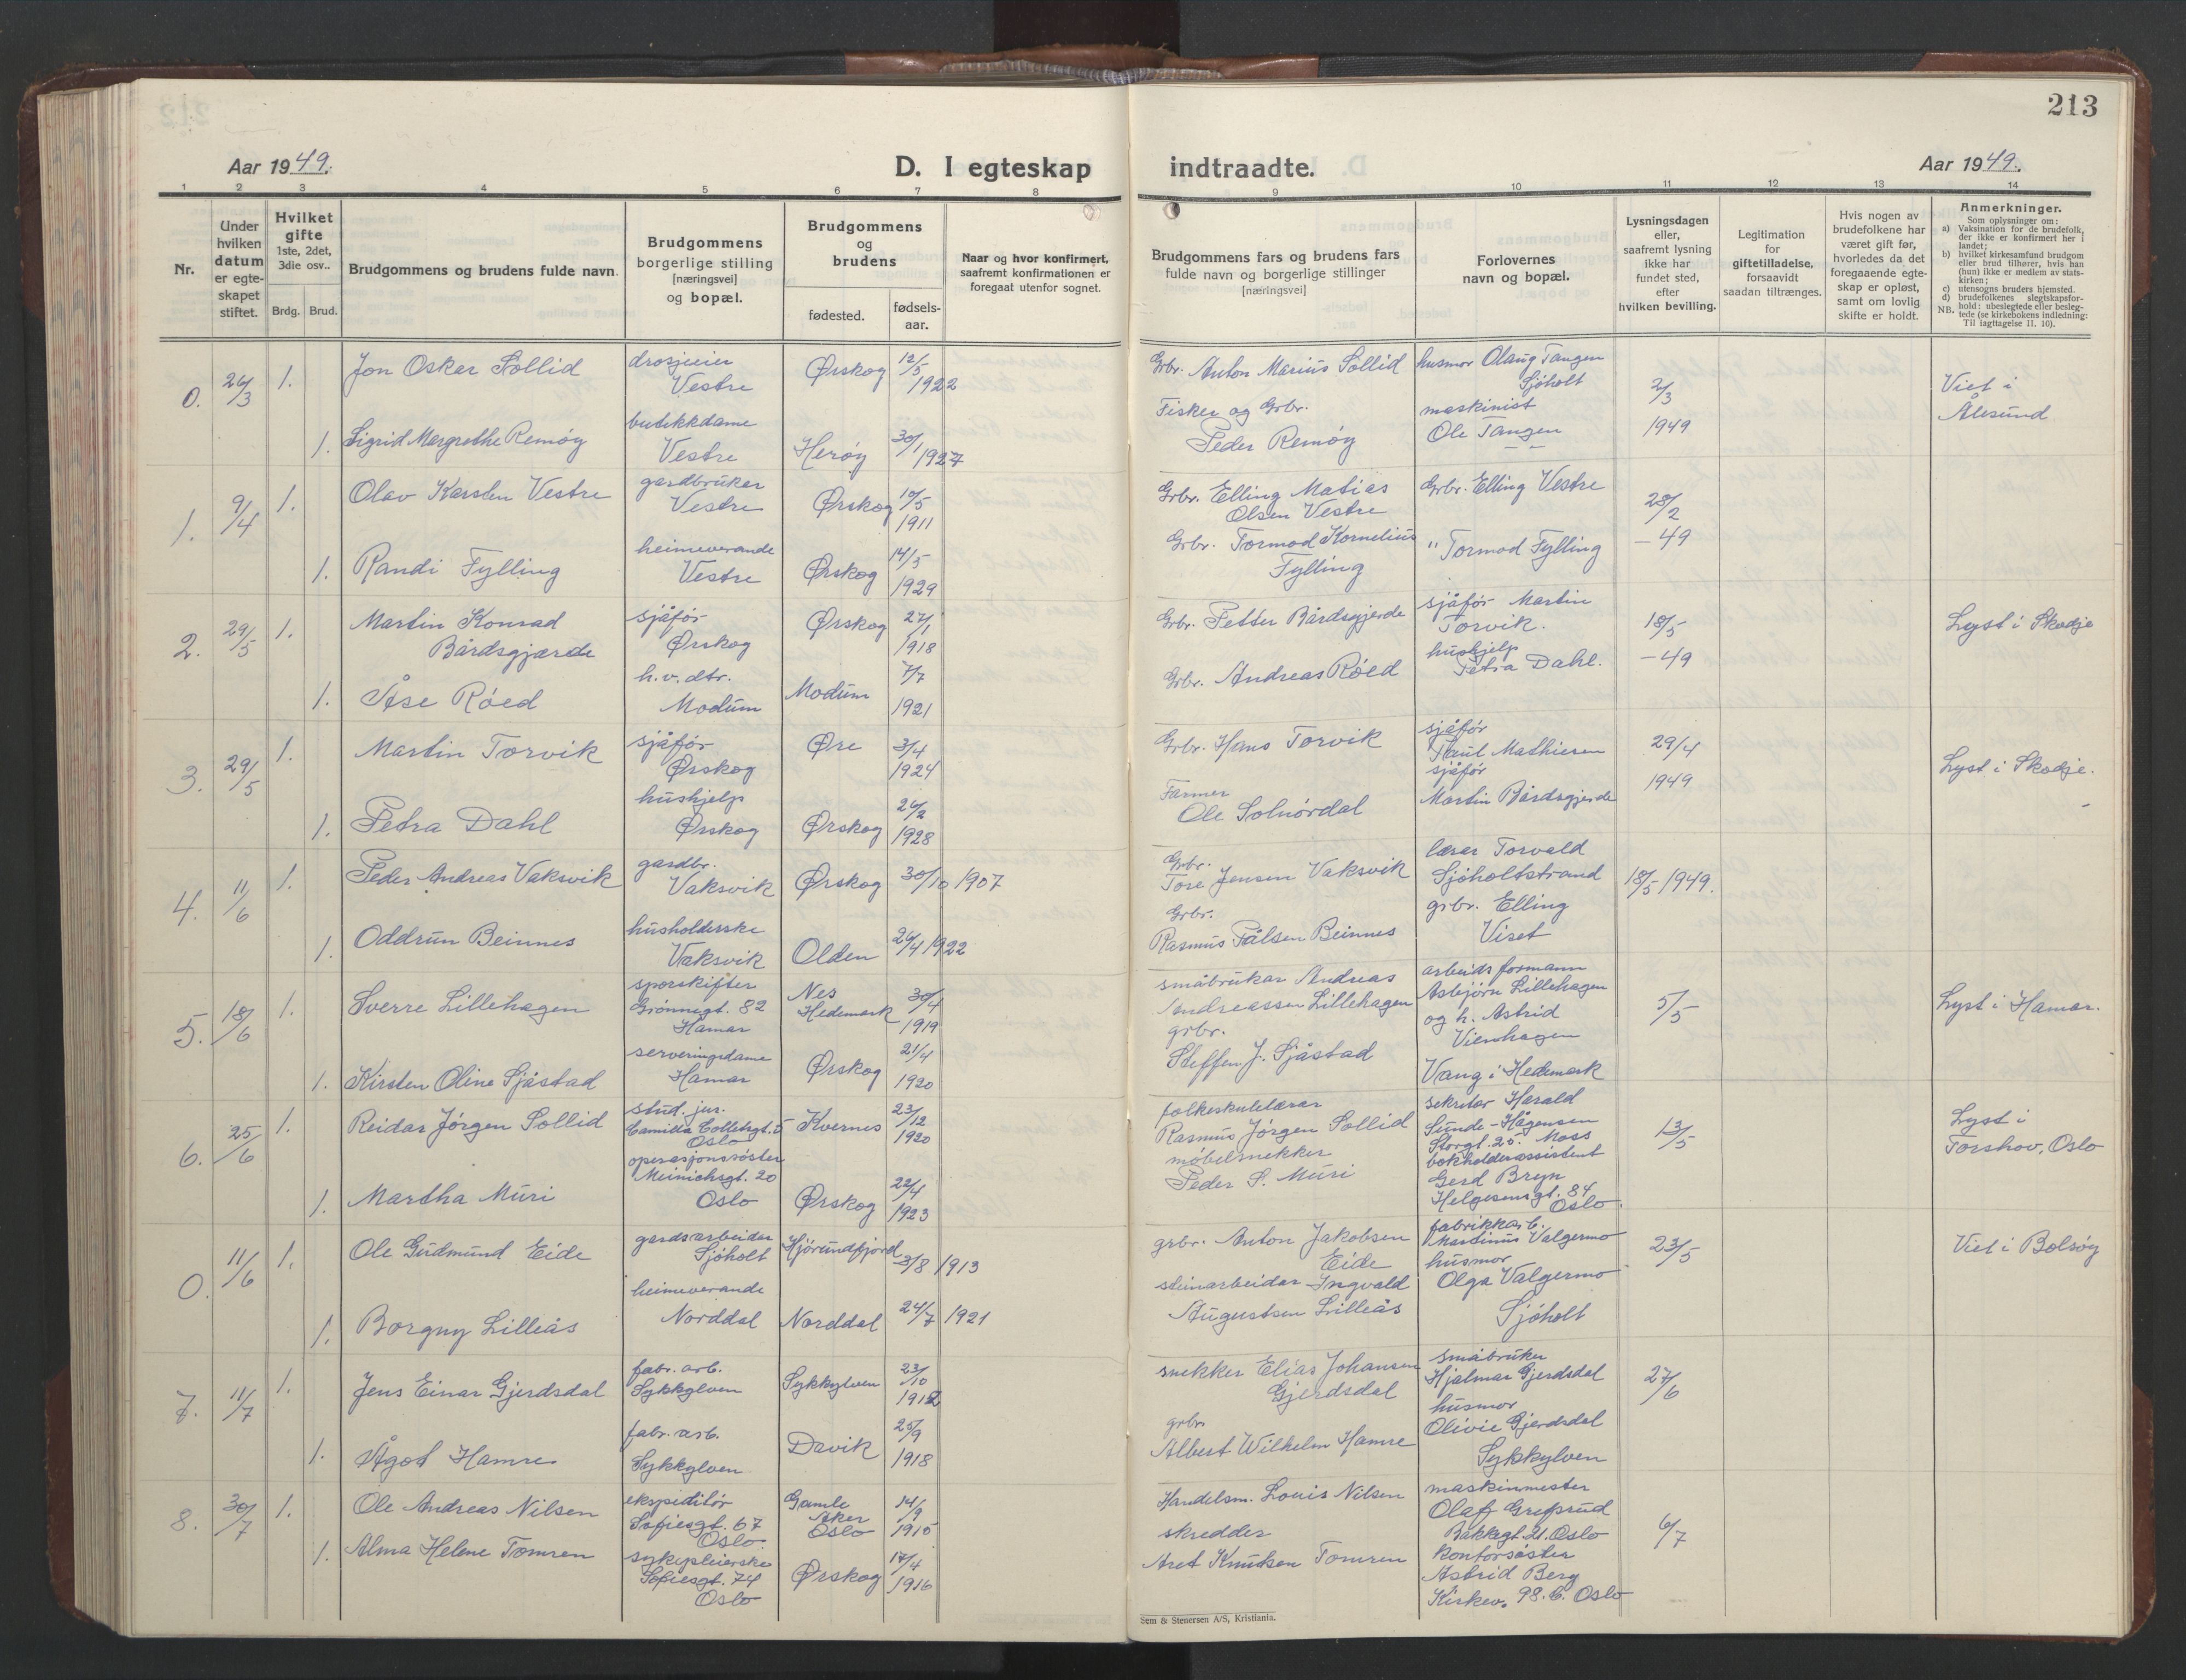 213
Aar 1949.
D. I egteskap
indtraadte.
Aar 1949.
1 2 3 4 5 6 7 8 9 10 11 12 13 14
Nr.
Under
hvilken
datum
er egte-
skapet
stiftet.
Hvilket
gifte
1ste, 2det,
3die osv..
Brdg. Brud.
Brudgommens og brudens fulde navn.
Brudgommens
borgerlige stilling
[næringsvei]
og bopæl.
Brudgommens
og
brudens
fødested.
fødsels-
aar.
Naar og hvor konfirmert,
saafremt konfirmationen er
foregaat utenfor sognet.
Brudgommens fars og brudens fars
fulde navn og borgerlige stillinger
[næringsvei]
Forlovernes
navn og bopæl.
Lysningsdagen
eller,
saafremt lysning
ikke har
fundet sted,
efter
hvilken bevilling.
Legitimation
for
giftetilladelse,
forsaavidt
saadan tiltrænges.
Hvis nogen av
brudefolkene har
været gift før,
hvorledes da det
foregaaende egte-
skap er opløst,
samt om lovlig
skifte er holdt.
Anmerkninger.
Som oplysninger om:
a) Vaksination for de brudefolk,
der ikke er konfirmert her i
landet;
b) hvilket kirkesamfund brudgom
eller brud tilhører, hvis han
(hun) ikke er medlem av stats-
kirken;
c) utensogns bruders hjemsted.
d) brudefolkenes slegtskapsfor-
hold: ubeslegtede eller besleg-
NB. tede (se kirkebokens indledning:
Til iagttagelse II, 10).
0. 26/3 1. Jon Oskar Sollid
drosjeeier
Vestre
Ørskog 12/5 1922
Grbr. Anton Marius Sollid
husmor Olaug Tangen
Sjøholt
2/3
1949
Viet i
Ålesund
1. Sigrid Margrethe Remøy
butikkdame
Vestre
Herøy 30/1 1927
Fisker og Grbr.
Peder Remøy
maskinist
Ole Tangen
1. 9/4 1. Olav Karsten Vestre
gardbruker
Vestre
Ørskog 10/5 1911
Grbr. Elling Matias
Olsen Vestre
Grbr. Elling Vestre
28/2
- 49
1. Randi Fylling
heimeverande
Vestre
Ørskog 14/5 1929
Grbr. Tormod Kornelius
Fylling
" Tormod Fylling
2. 29/5 1. Martin Konrad
Bårdsgjærde
sjåfør
Ørskog
Ørskog 27/1 1918
Grbr. Petter Bårdsgjerde
sjåfør Martin
Torvik.
18/5
- 49
Lyst i Skodje
1. Åse Røed
h.v. dtr.
Modum
Modum 7/7 1921
Grbr. Andreas Røed
hushjelp
Petra Dahl.
3. 29/5 1. Martin Torvik
sjåfør
Ørskog
Øre 3/4 1924
Grbr. Hans Torvik
sjåfør
Paul Mathiesen
29/4
1949
Lyst i Skodje.
1. Petra Dahl
hushjelp
Ørskog
Ørskog 26/2 1928
Farmer
Ole Solnørdal
sjåfør
Martin Bårdsgjerde
4. 11/6 1. Peder Andreas Vaksvik
gardbr.
Vaksvik
Ørskog 30/10 1907
Grbr.
Tore Jensen Vaksvik
lærer Torvald
Sjøholtstrand
18/5 1949.
1. Oddrun Beinnes
husholderske
Vaksvik
Olden 26/4 1922
Grbr.
Rasmus Pålsen Beinnes
grbr. Elling
Viset
5. 18/6 1. Sverre Lillehagen
sporskifter
Grønnegt. 82
Hamar
Nes
Hedemark 30/4 1919
småbrukar Andreas
Andreassen Lillehagen
arbeidsformann
Asbjørn Lillehagen
og h. Astrid
Vienhagen
Vang i Hedemark
5/5
Lyst i Hamar.
1. Kirsten Oline Sjåstad
serveringsdame
Hamar
Ørskog 21/4 1920
grbr.
Steffen J. Sjåstad
6. 25/6 1. Reidar Jørgen Sollid
stud. jur.
Camilla Colletsgt. 5
Oslo
Kvernes 23/12 1920
folkeskulelærar
Rasmus Jørgen Sollid
sekretær Harald
Sunde-Hågensen
Storgt. 25. Moss
13/5
Lyst i
Torshov, Oslo
1. Martha Muri
operasjonssøster
Meinichsgt. 20
Oslo
Ørskog 22/4 1923
møbelsnekker
Peder S. Muri
bokholderassistent
Gerd Bryn
Helgesensgt. 84
Oslo.
0. 11/6 1. Ole Gudmund Eide
gardsarbeidar
Sjøholt
Hjørundfjord 3/8 1913
grbr. Anton Jakobsen
Eide
fabrikkarb.
Martinus Valgermo
23/5
Viet i Bolsøy
1. Borgny Lilleås
heimeverande
Norddal
Norddal 24/7 1921
steinarbeidar Ingvald
Augustsen Lilleås
husmor
Olga Valgermo
Sjøholt
7. 11/7 1. Jens Einar Gjerdsdal
fabr. arb.
Sykkylven
Sykkylven 23/10 1912
snekker Elias Johansen
Gjerdsdal
småbruker
Hjalmar Gjerdsdal
27/6
1. Ågot Hamre
fabr. arb.
Sykkylven
Davik 25/9 1918
grbr.
Albert Wilhelm Hamre
husmor
Olivie Gjerdsdal
Sykkylven
8. 30/7 1. Ole Andreas Nilsen
ekspeditør
Sofiesgt. 67
Oslo.
Gamle
Aker
Oslo 14/9 1915
Handelsm. Louis Nilsen
maskinmester
Olaf Grefsrud
Bakkegt. 21. Oslo
6/7
1. Alma Helene Tomren
sykepleierske
Sofiesgt. 74
Oslo
Ørskog 17/4 1916
skredder
Aret Knutsen Tomren
kontorsøster
Astrid Berg
Kirkev. 98. b. Oslo
Sem & Stenersen A/S, Kristiania.